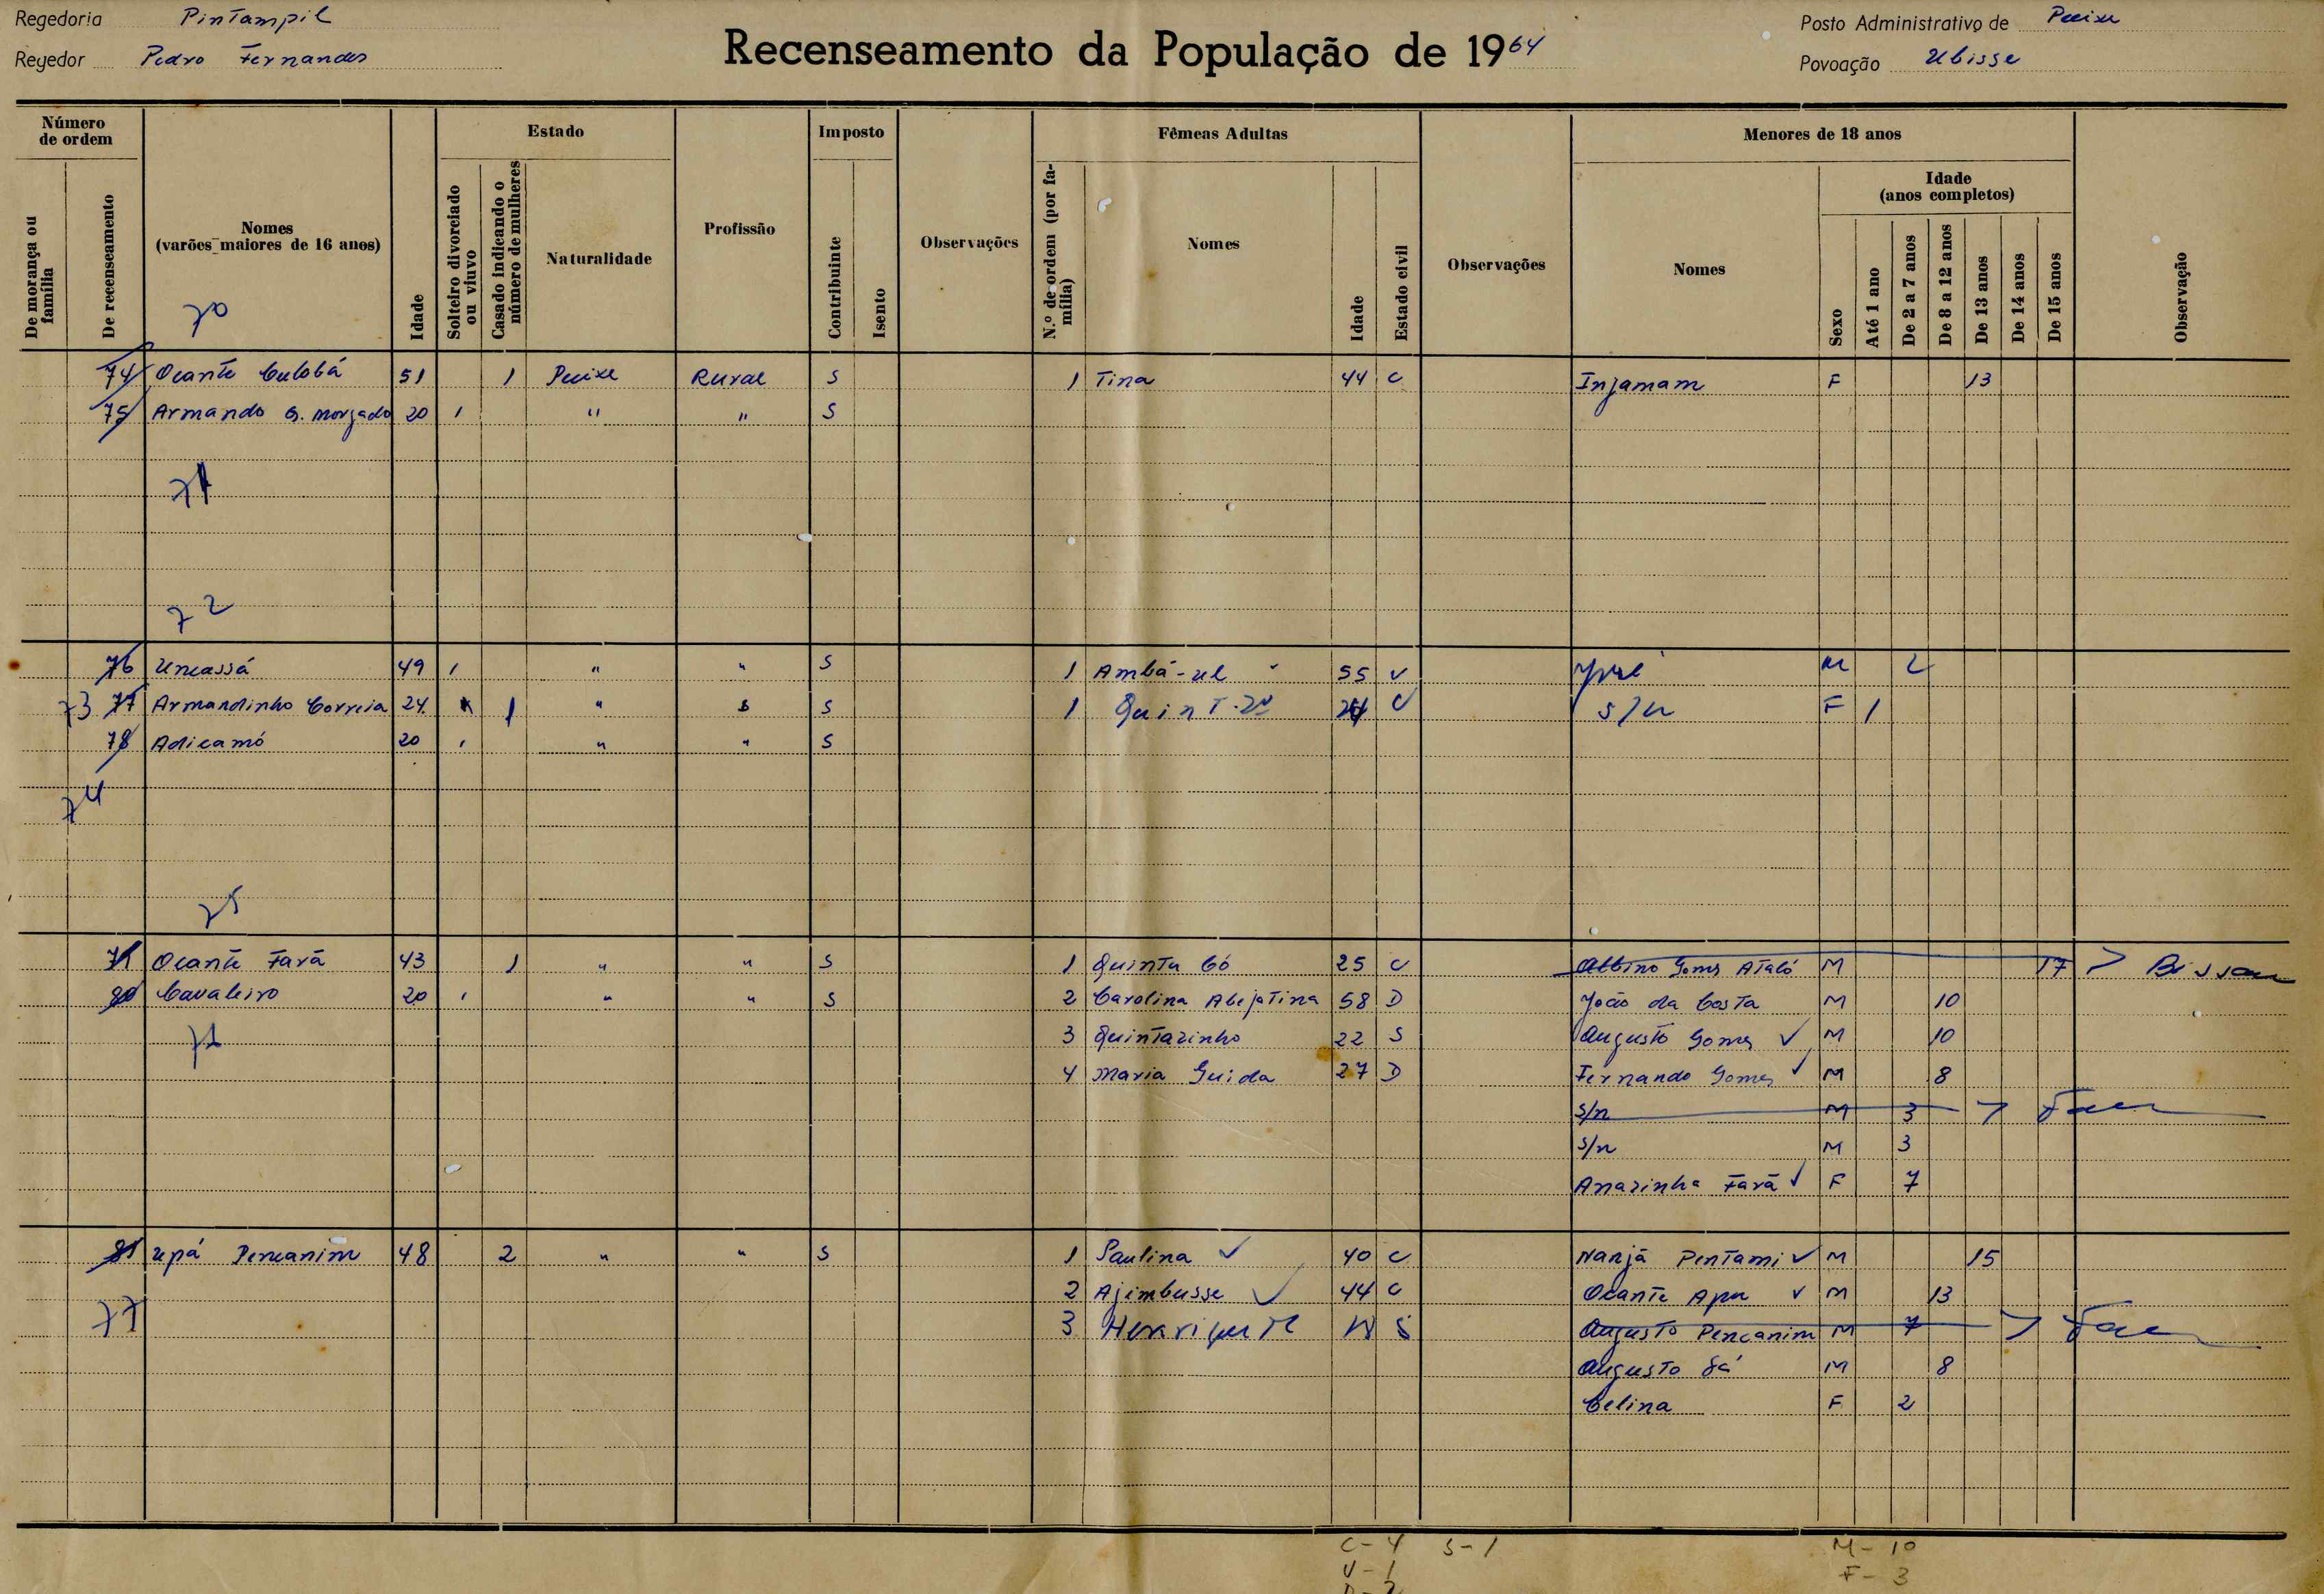 Regedoria Pintampil
Regedor Pedro Fernandes
Recenseamento da População de 1964
Posto Administrativo de Pecixe
Povoação Ubisse
Número de ordem
De morança ou família
De recenseamento
Nomes (varões maiores de 16 anos)
Idade
Estado
Solteiro divorciado ou viuvo
Casado indicando o número de mulheres
Naturalidade
Profissão
Imposto
Contribuinte
Isento
Observações
Fêmeas Adultas
N.º de ordem (por família)
Nomes
Idade
Estado civil
Observações
Menores de 18 anos
Nomes
Sexo
Idade (anos completos)
Até 1 ano
De 2 a 7 anos
De 8 a 12 anos
De 13 anos
De 14 anos
De 15 anos
Observação
70
74 Ocante Culobá 51 1 Pecixe Rural S 1 Tina 44 C Injamam F 13
75 Armando G. Morgado 20 1 " " S
71
72
76 Uncassá 49 1 " " S 1 Ambá-ul 55 V M 2
73 77 Armandinho Correia 24 1 " S 1 C S/n F 1
78 Adicamó 20 1 " " S
74
75
Ocante Favã 43 1 " " S 1 Quinta Có 25 C Albino Gomes Ataló M 17 > Bissau
80 Cavaleiro 20 1 " " S 2 Carolina Abejatina 58 D João da Costa M 10
3 Quintazinho 22 S Augusto Gomes ✓ M 10
4 Maria Guida 27 D Fernando Gomes ✓ M 8
S/n M 3 >
S/n M 3
Anazinha Favã ✓ F 7
81 Upá Pencanim 48 2 " " S 1 Paulina ✓ 40 C Nanjã Pentami ✓ M 15
2 Ajimbusse ✓ 44 C Ocante Apu ✓ M 13
77 3 S Augusto Pencanim M 7 >
Augusto Sá M 8
Celina F 2
C - 4 S - 1 M - 10
V - 1 F - 3
D - 2